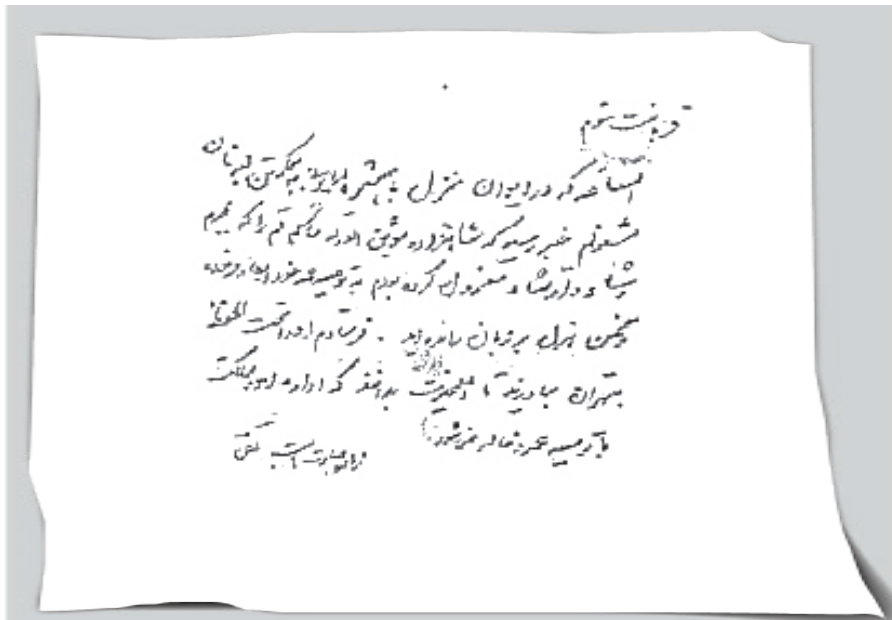 قربانت شوم
الساعه که در ایوان منزل با همشیره همایونی به شکستن لبه نان
مشغولم خبر رسید که شاهزاده موثق الدوله حاکم قم را که بجرم
رشاء و ارتشاء معزول کرده بودم به توصیه عمه خود ابقاء فرموده
و سخن هزل بر زبان رانده اید . فرستادم او را تحت الحفظ
بتهران بیاورند تا اعلیحضرت بدانند که اداره امور مملکت
با توصیه عمه و خاله نمی شود .
زیاده جسارت است تقی